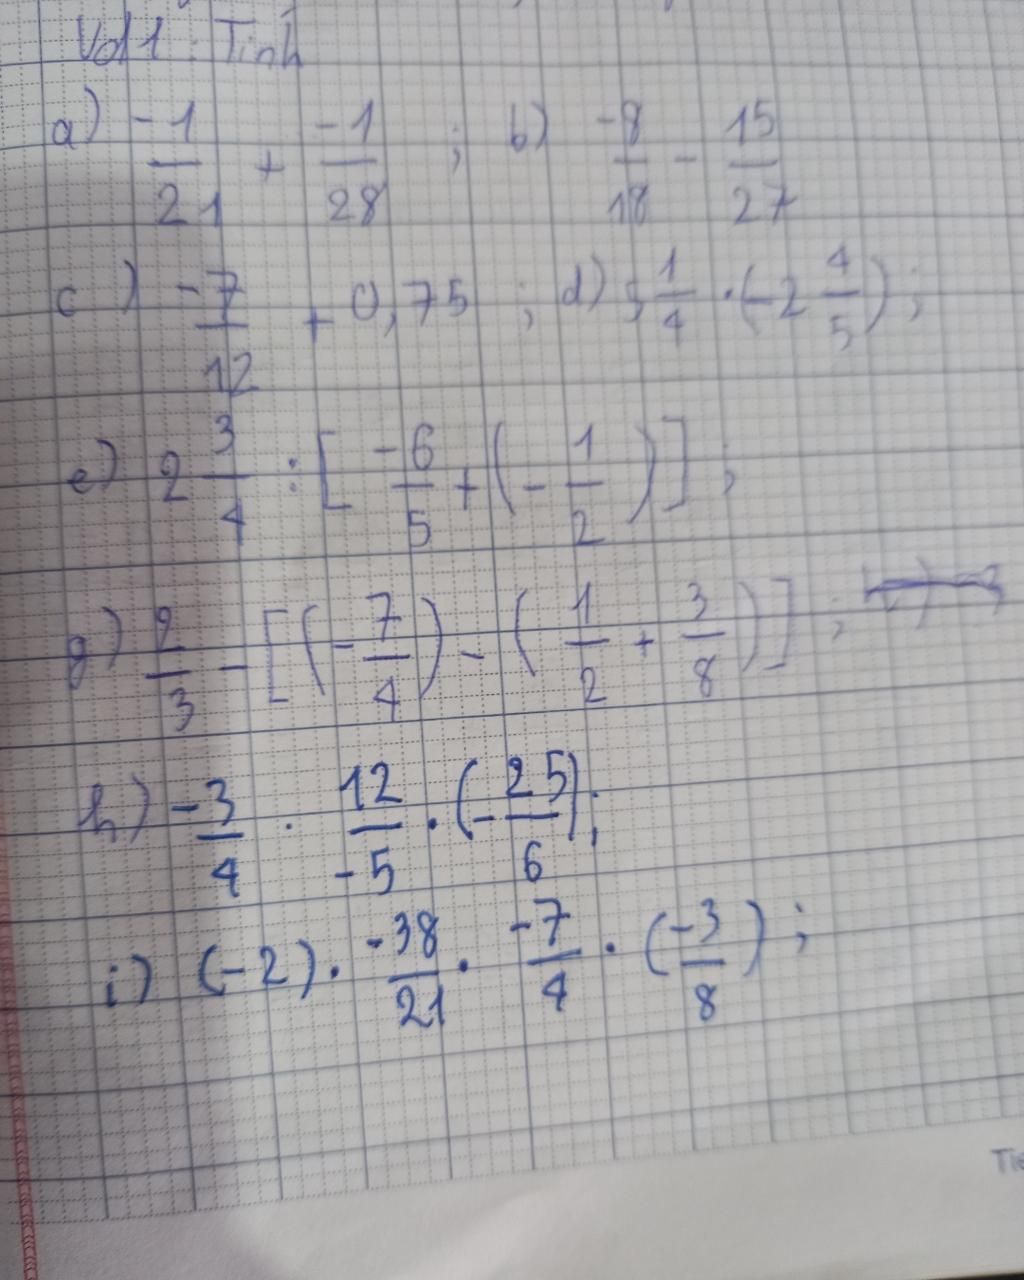 Vd1: Tính
a) -1/21 + -1/28 ; b) -8/18 - 15/27
c) -7/12 + 0,75 ; d) 5 1/4 . (-2 4/5) ;
e) 2 3/4 : [ -6/5 + (- 1/2) ] ;
g) 2/3 - [ (- 7/4) - ( 1/2 + 3/8 ) ] ;
h) -3/4 . 12/-5 . (- 25/6) ;
i) (-2) . -38/21 . -7/4 . ( -3/8 ) ;